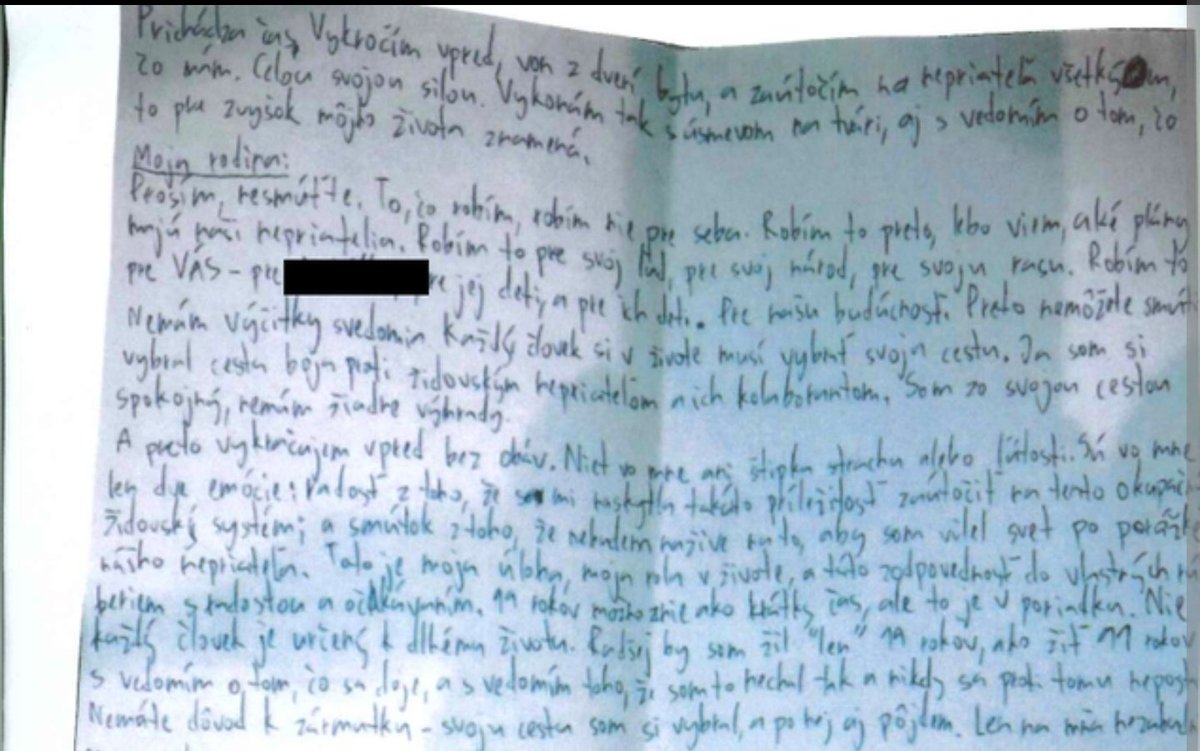 Prichádza čas. Vykročím vpred, von z dverí bytu, a zaútočím na nepriateľa všetkým,
čo mám. Celou svojou silou. Vykonám tak s úsmevom na tvári, aj s vedomím o tom, čo
to pre zvyšok môjho života znamená.
Moja rodina:
Prosím, nesmúťte. To, čo robím, robím nie pre seba. Robím to preto, lebo viem, aké plány
majú naši nepriatelia. Robím to pre svoj ľud, pre svoj národ, pre svoju rasu. Robím to
pre VÁS - pre jej deti, a pre ich deti. Pre našu budúcnosť. Preto nemôžete
Nemám výčitky svedomia. Každý človek si v živote musí vybrať svoju cestu. Ja som si
vybral cestu boja proti židovským nepriateľom a ich kolaborantom. Som so svojou cestou
spokojný, nemám žiadne výhrady.
A preto vykračujem vpred bez obáv. Niet vo mne ani štipka strachu alebo ľútosti. Sú vo mne
len dve emócie: radosť z toho, že sa mi naskytla takáto príležitosť zaútočiť na tento
židovský systém; a smútok z toho, že nebudem nažive na to, aby som videl svet po
nášho nepriateľa. Toto je moja úloha, moja rola v živote, a túto zodpovednosť do vlastných
beriem s radosťou a očakávaním. 19 rokov možno znie ako krátky čas, ale to je v poriadku. Nie
každý človek je určený k dlhému životu. Radšej by som žil "len" 19 rokov, ako žiť 99 rokov
s vedomím o tom, čo sa deje, a s vedomím toho, že som to nechal tak a nikdy sa proti tomu
Nemáte dôvod k zármutku - svoju cestu som si vybral, a po nej aj pôjdem. Len na mňa